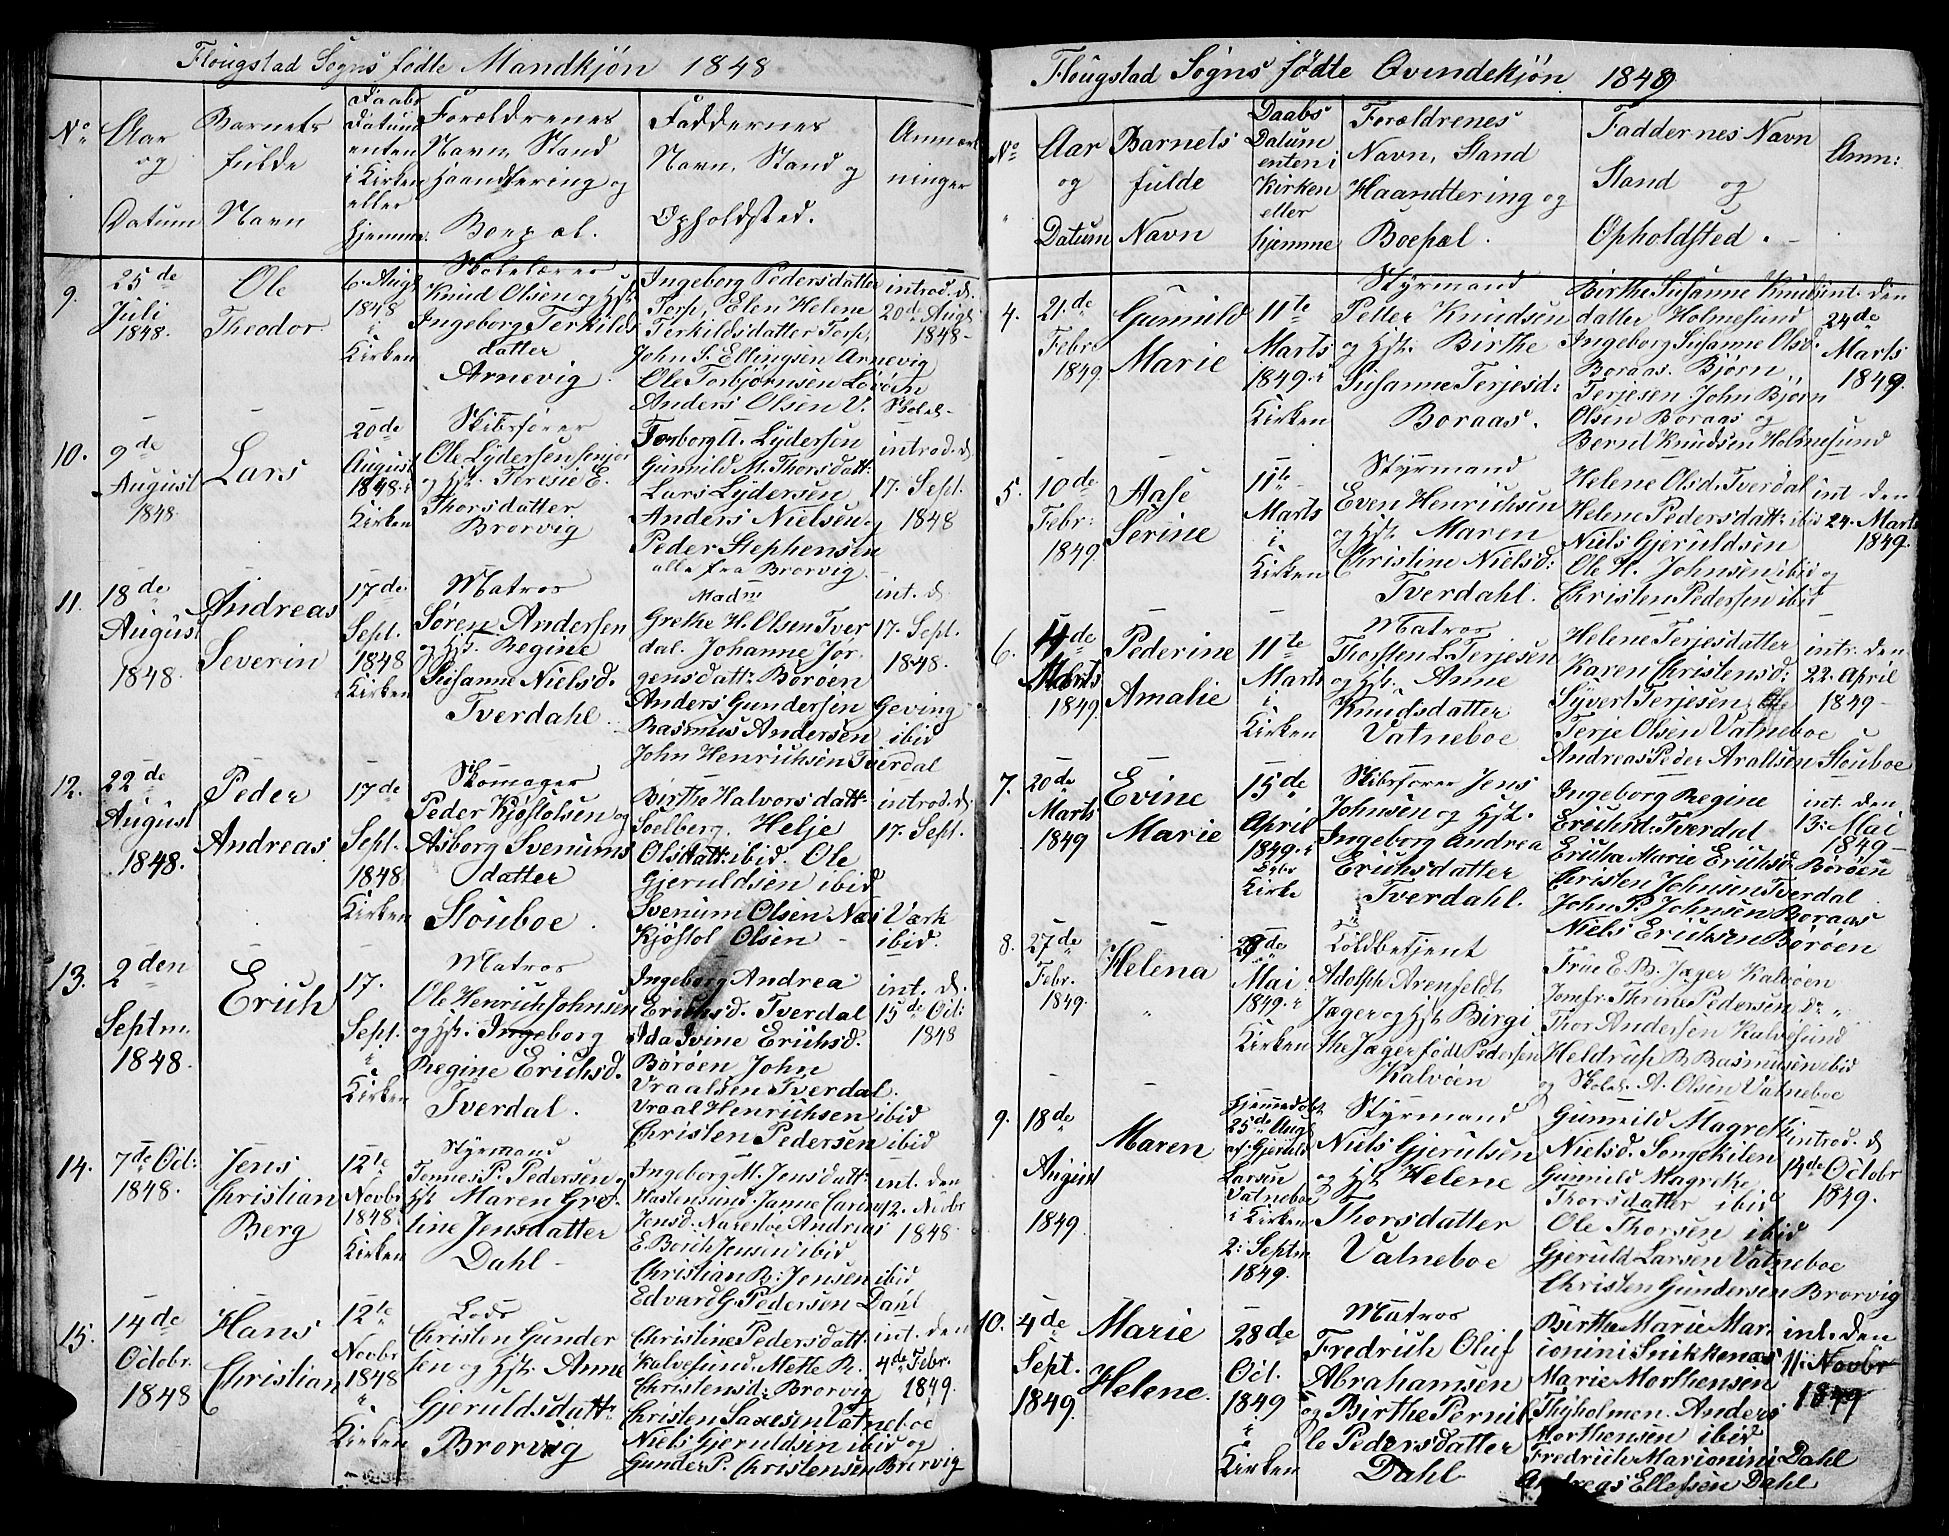 Flougstad Sogns fødte Mandkjøn 1848
No
Aar
og
Datum
Barnets
fulde
Navn
Daabs
Datum
enten
i Kirken
eller
hjemme
Forældrenes
Navn, Stand
Haandtering og
Boepæl.
Faddernes
Navn, Stand og
Opholdsted.
Anmærk
ninger
9.
25de
Juli
1848.
Ole
Theodor
6 Aug.
1848
i
Kirken
Skolelærer
Knud Olsen og Hst.
Ingeborg Terkilds
datter
Arnevig
Ingeborg Pedersdatter
Torse, Elen Helene
Terkildsdatter Torse,
John F. Ellingsen Arnevig
Ole Torbjørnsen
Anders Olsen V. Skolel-
introd. d.
20d. Aug.
1848-
10.
9de
August
1848.
Lars
20de
August
1848. i
Kirken
Skibsfører
Ole Lydersen senior
og Hst. Teresie E.
Thorsdatter
Brorvig
Torborg A. Lydersen
Gunnild M. Thorsdatt:
Lars Lydersen
Anders Nielsen
Peder Stephensen
alle fra Brorvig.
introd. d.
17. Sept.
1848
11.
18de
August
1848.
Andreas
Severin
17de
Sept.
1848
Kirken
Matros
Søren Andersen
og Hst. Regine
Susanne Nielsd.
Tverdahl
Madm
Grethe H. Olsen Tver
dal. Johanne Jør
gensdatt: Borøen
Anders Gundersen Goving
Rasmus Andersen ibid
John Henrichsen Tverdal
int. d
17. Sept.
1848.
12.
22de
August
1848.
Peder
Andreas
17de
Sept.
1848
Kirken
Skomager
Peder Kjøstolsen og
Asborg Svenums
datter
Stouboe
Birthe Halvorsdatt:
Soelberg. Helje
Olsdatt: ibid. Ole
Gjeruldsen ibid
Svenum Olsen Næs Værk
Kjøstol Olsen - ibid.
introd. d.
17. Sept.
13.
2den
Septm.
1848.
Erich
17.
Sept.
i
Kirken
Matros
Ole Henrich Johnsen
og Hst. Ingeborg
Regine Erichsd.
Tverdal.
Ingeborg Andrea
Erichsd. Tverdal
Ida Ivine Erichsd.
Borøen John
Vraalsen Tverdal.
Vraal Henrichsen ibid
Christen Pedersen ibid
int. d.
15de Oct:
1848
14.
7de Oct:
1848.
Jens
Christian
Berg
12te
Novbr
1848.
Kirken
Styrmand
Tønnes P. Pedersen og
Hst Maren Gre-
line Jensdatter
Dahl -
Ingeborg M. Jensdatt:
Hastensund. Janne Caren
Jensd. Narestøe Andreas
E. Borch Jensen ibid
Christian B: Jensen ibid
Edvard G. Pedersen Dahl
int. den
12. Novbr
1848
15.
14de
Octobr.
1848
Hans
Christian
12te
Novbr
1848
i
Kirken
Lods
Christen Gunder
sen og Hst. Anne
Gjeruldsdatt:
Brorvig
Christine Pedersdatt:
Kalvesund. Mette R.
Christensd: Brorvig
Christen Saxesen Vatneboe
Niels Gjeruldsen ibid og
Gunder P. Christensen Brorvig
int. den
4de Febr.
1849.
Flougstad Sogns fødte Qvindekjøn. 1849
No
Aar
og
Datum
Barnets
fulde
Navn
Daabs
Datum
enten i
Kirken
eller
hjemme
Forældrenes
Navn, Stand
Haandtering og
Boepæl.
Faddernes Navn
Stand og
Opholdsted.
Anm:
4.
21.de
Febr
1849.
Gunnild
Marie
11te
Marts
1849. i
Kirken
Styrmand
Petter Knudsen
og Hst. Birthe
Susanne Terjesd:
Boraas.
Birthe Susanne Knuds
datter Holmesund
Ingeborg Susanne Olsd.
Boraas. Bjørn
Terjesen. John Bjørn
Olsen Boraas og
Bernt Knudsen Holmesund
int. den
24de
Marts
1849.
5.
10de
Febr:
1849.
Aase
Serine
11te
Marts
i
Kirken
Styrmand
Even Henrichsen
og Hst. Maren
Christine Nielsd:
Tverdahl.
Helene Olsd. Tverdal
Helene Pedersdatt: ibid
Niels Gjeruldsen
Ole H. Johnsen ibid og
Christen Pedersen ibid
int den
24. Marts
1849.
6.
4de
Marts
1849.
Pederine
Amalie
11te
Marts
i
Kirken
Matros
Thorsten L. Terjesen
og Hst. Anne
Knudsdatter
Vatneboe
Helene Terjesdatter
Karen Christensd:
Syvert Terjesen
Terje Olsen Vatneboe
Andreas Peder Araltsen Stouboe
intr. den
22. April
1849-
7.
20de
Marts
1849
Evine
Marie
15de
April
1849. i
Kirke
Skibsfører Jens
Johnsen og Hst.
Ingeborg Andrea
Erichsdatter
Tverdahl.
Ingeborg Regine
Erichsd. Tverdal
Ericha Marie Erichsd Borøen
Christen Johnsen Tverdal
John P. Johnsen Boraas
Niels Erichsen Borøen
int. den
13: Mai
1849-
8.
27de
Febr.
1849.
Helena
28de
Mai
1849. i
Kirken
Toldbetjent
Adolph Arenfeldt
Jæger og Hst Birgi
the Jæger født Pedersen
Kalvøen
Frue E. B. Jæger Kalvøen
Jomfr. Thrine Pedersen Do
Thor Andersen Kalvesund
Heldruf B. Rasmussen ibid
og Skolel. A. Olsen Vatneboe
9.
18de
August
1849.
Maren
Hjemmedøbt
25de Aug.
af Gjeruld
Larsen
Vatneboe
i Kirken
2: Septm
1849.
Styrmand
Niels Gjerulsen
og Hst Helene
Thorsdatter
Vatneboe
Gunnild Magrethe
Nielsd. Songekilen
Gunnild Magrethe
Thorsdatter ibid
Ole Thorsen ibid
Gjeruld Larsen Vatneboe
Christen Gundersen Brorvig
introd. d
14de Octobr
1849.
10.
4de
Sept.
1849.
Marie
Helene.
28de
Oct.
1849
i
Kirken
Matros
Fredrich Oluf
Abrahamsen
og Birthe Pernil
le Pedersdatter
Dahl
Birthe Marie Mar-
ionini Snikkenæs
Marie Morthensen
Thyholmen. Anders
Morthensen ibid
Fredrich Marionini Dahl
Andreas Ellefsen Dahl
int. den
11: Novbr
1849